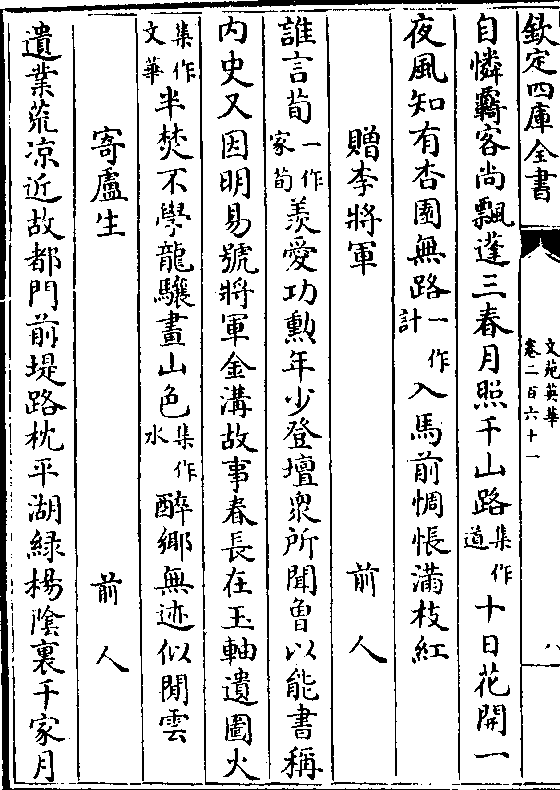 欽定四庫全書
文苑英華
卷二百六十一
八
自憐羇客尚飄蓬三春月照千山路集作道十日花開一
夜風知有杏園無路一作計入馬前惆悵滿枝紅
贈李將軍 前人
誰言荀一作家荀羨愛功勲年少登壇衆所聞曾以能書稱
内史又因明易號將軍金溝故事春長在玉軸遺圖火
集作文華半焚不學龍驤畫山色集作水醉鄉無迹似閒雲
寄盧生 前人
遺業荒凉近故都門前堤路枕平湖緑楊隂裏千家月